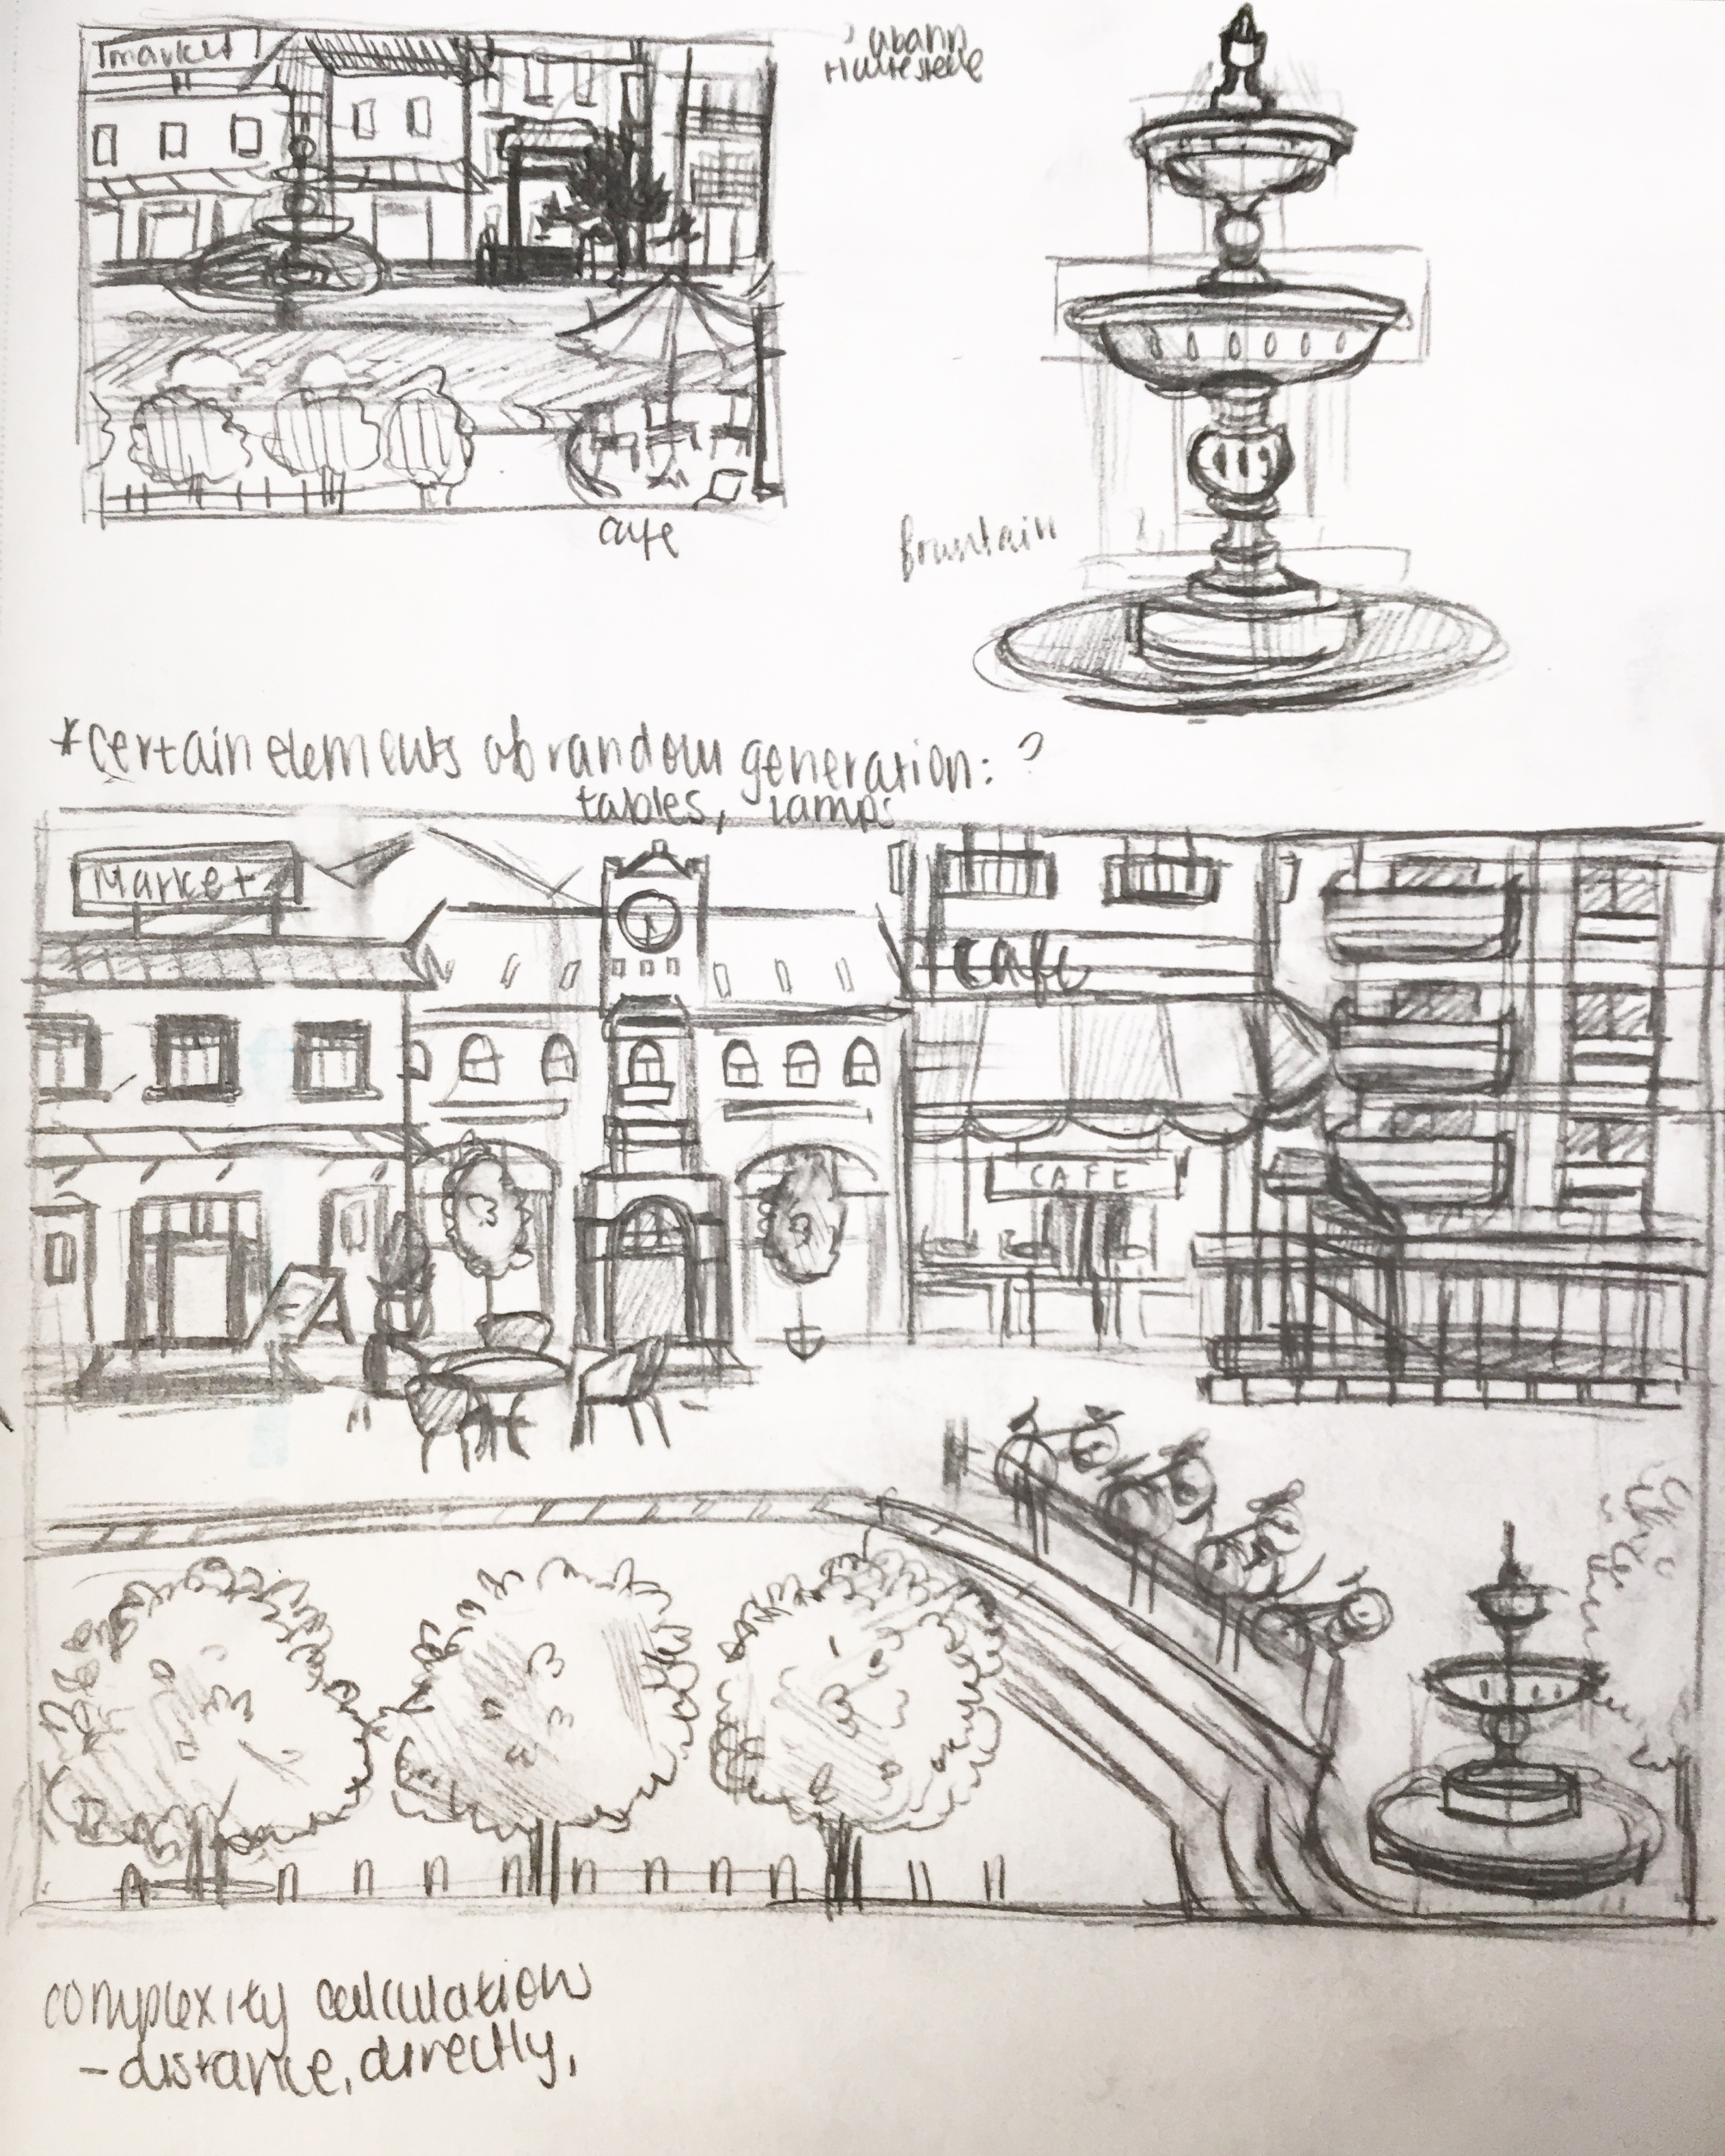 market
cafe
fountain
*certain elements of random generation: ?
tables, lamps
Market
cafe
CAFE
complexity calculation
- distance, directly,